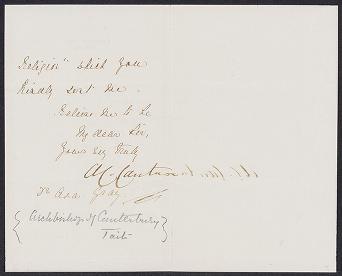 Religion" which you
kindly sent me.
Believe me to be
My dear Sir,
Yours very truly
A C Cantuar
Dr Asa Gray
{ Archbishop of Canterbury }
Tait